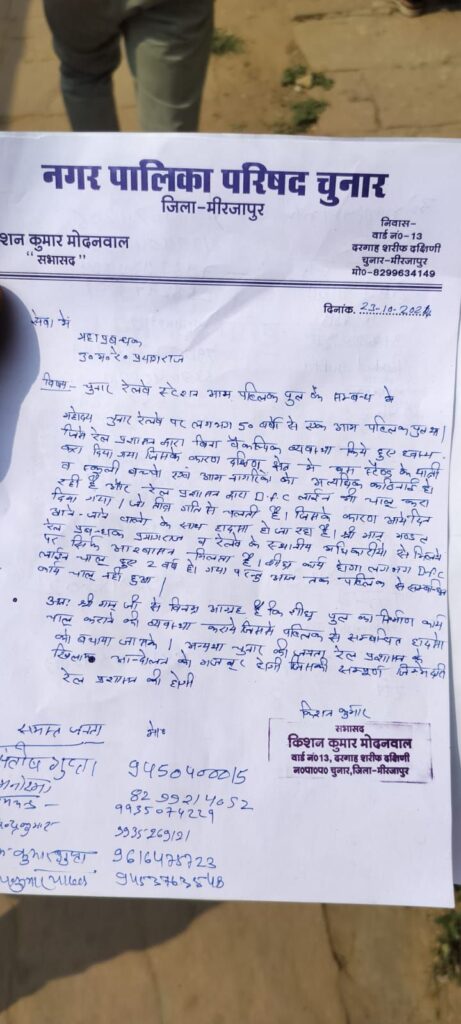 नगर पालिका परिषद चुनार
जिला-मीरजापुर
शन कुमार मोदनवाल
"सभासद"
निवास-
वार्ड नं०- 13
दरगाह शरीफ दक्षिणी
चुनार-मीरजापुर
मो०-8299634149
दिनांक. 23-10-2024
सेवा में
महाप्रबन्धक
उ० म० रे० प्रयागराज
विषय- चुनार रेलवे स्टेशन आम पब्लिक पुल के सम्बन्ध के
महोदय चुनार रेलवे पर लगभग 50 वर्षों से एक आम पब्लिक पुल था।
जिसे रेल प्रशासन द्वारा बिना वैकल्पिक व्यवस्था किये हुए ध्वस्त
करा दिया गया जिसके कारण दक्षिण क्षेत्र में बस स्टैण्ड के यात्री
व स्कूली बच्चो एवं आम नागरिक को अत्यधिक कठिनाई हो
रही है और रेल प्रशासन द्वारा D.F.C लाईन भी चालू करा
दिया गया। जो तीव्र गति से चलती है। जिसके कारण आयेदिन
आने-जाने वालो के साथ हादसा हो जा रहा है। श्री मान मण्डल
रेल प्रबन्धक प्रयागराज व रेलवे के स्थानीय अधिकारीयो से मिलने
पर सिर्फ आश्वासन मिलता है। शीघ्र कार्य होगा लगभग D.F.C
लाईन चालू हुए 2 वर्ष हो गया परन्तु आज तक पब्लिक से सम्बन्धित
कार्य चालू नही हुआ।
अतः श्री मान जी से विनम्र आग्रह है कि शीघ्र पुल का निर्माण कार्य
चालू कराने की व्यवस्था कराये जिससे पब्लिक से सम्बन्धित हादसा
को बचाया जा सके। अन्यथा चुनार की जनता रेल प्रशासन के
खिलाफ आन्दोलन को मजबूर होगी जिसकी सम्पूर्ण जिम्मेदारी
रेल प्रशासन की होगी
किशन कुमार
सभासद
किशन कुमार मोदनवाल
वार्ड नं०13, दरगाह शरीफ दक्षिणी
न०पा०प० चुनार,जिला-मीरजापुर
समस्त जनता मो०
गुप्ता 9450400015
मनोरमा 8299214052
9935074229
कुमार 9935269121
कुमार गुप्ता 9616475723
कुमार 9453763548